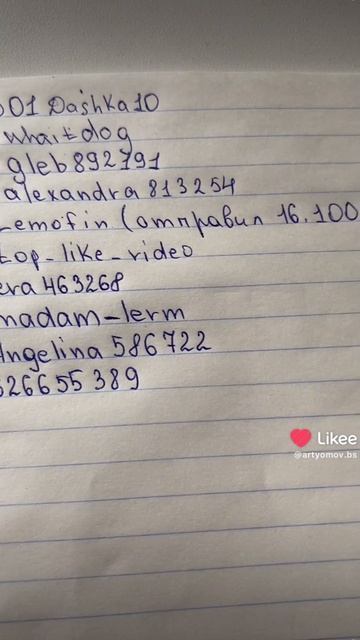 001 Dashka10
whaitdog
gleb892791
alexandra813254
Lemofin (отправил 16.100
top-like-video
era463268
madam-lerm
Angelina 586722
626655389
Likee
@artyomov.bs